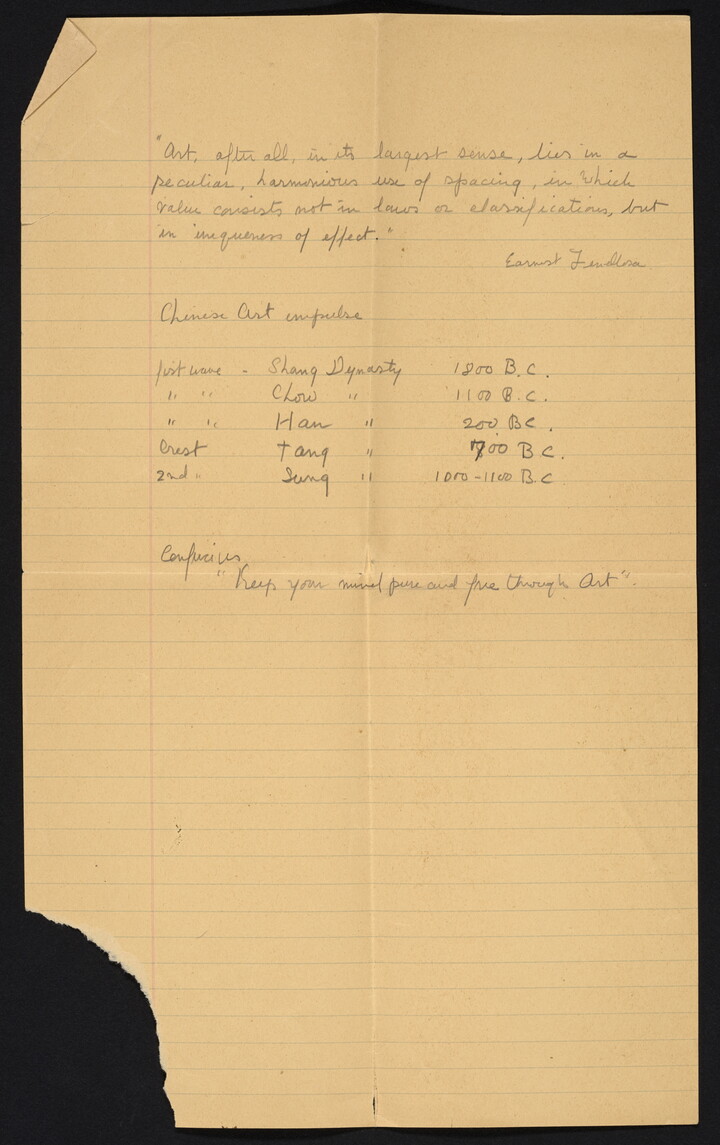 "Art, after all, in its largest sense, lies in a
peculiar, harmonious use of spacing, in which
value consists not in laws or classifications, but
in uniqueness of effect."
Earnest Fenollosa
Chinese Art impulse
first wave - Shang Dynasty 1800 B.C.
" " Chow " 1100 B.C.
" " Han " 200 BC.
Crest Tang " 700 B C.
2nd " Sung " 1000-1100 B.C
Confucius
"Keep your mind pure and free through Art".